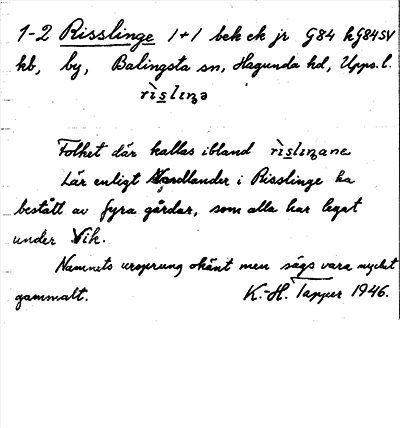 1-2 Risslinge 1+1 bek ek jr G84 kG84SV
kb, by, Balingsta sn, Hagunda hd, Upps. l.
rìsliŋə
Folket där kallas ibland rìsliŋane
Lär enligt Nordlander i Risslinge ha
bestått av fyra gårdar, som alla har legat
under Vik.
Namnets ursprung okänt men sägs vara mycket
gammalt. K.-H. Tapper 1946.